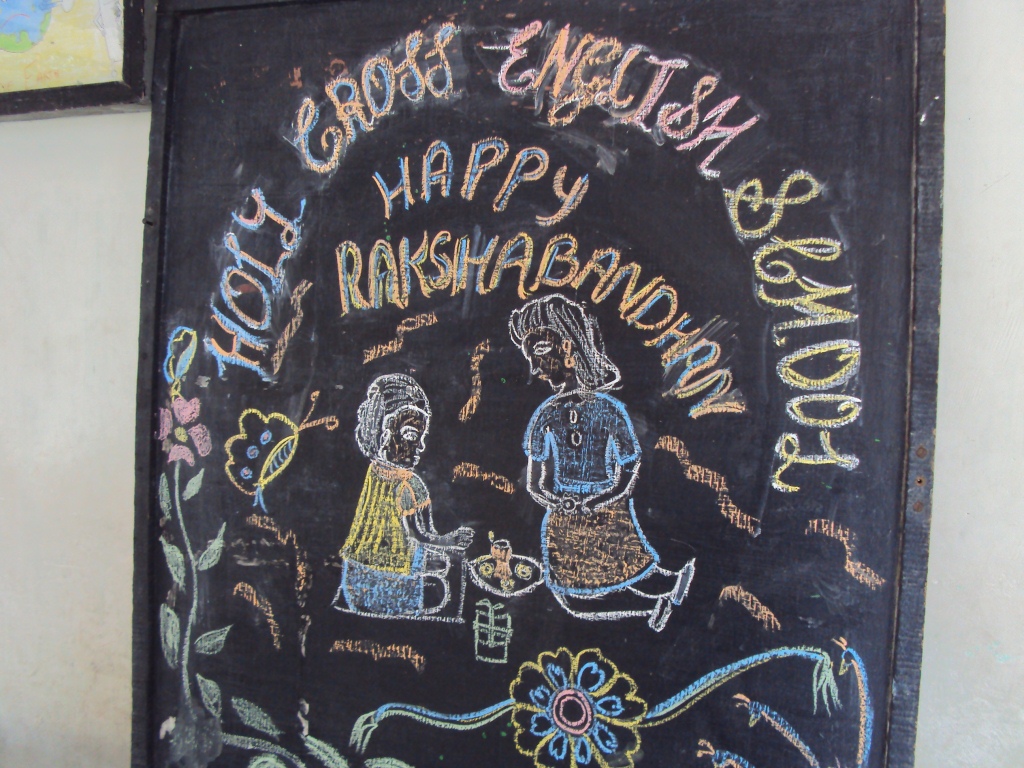 HOLY CROSS ENGLISH SCHOOL
HAPPY
RAKSHABANDHAN